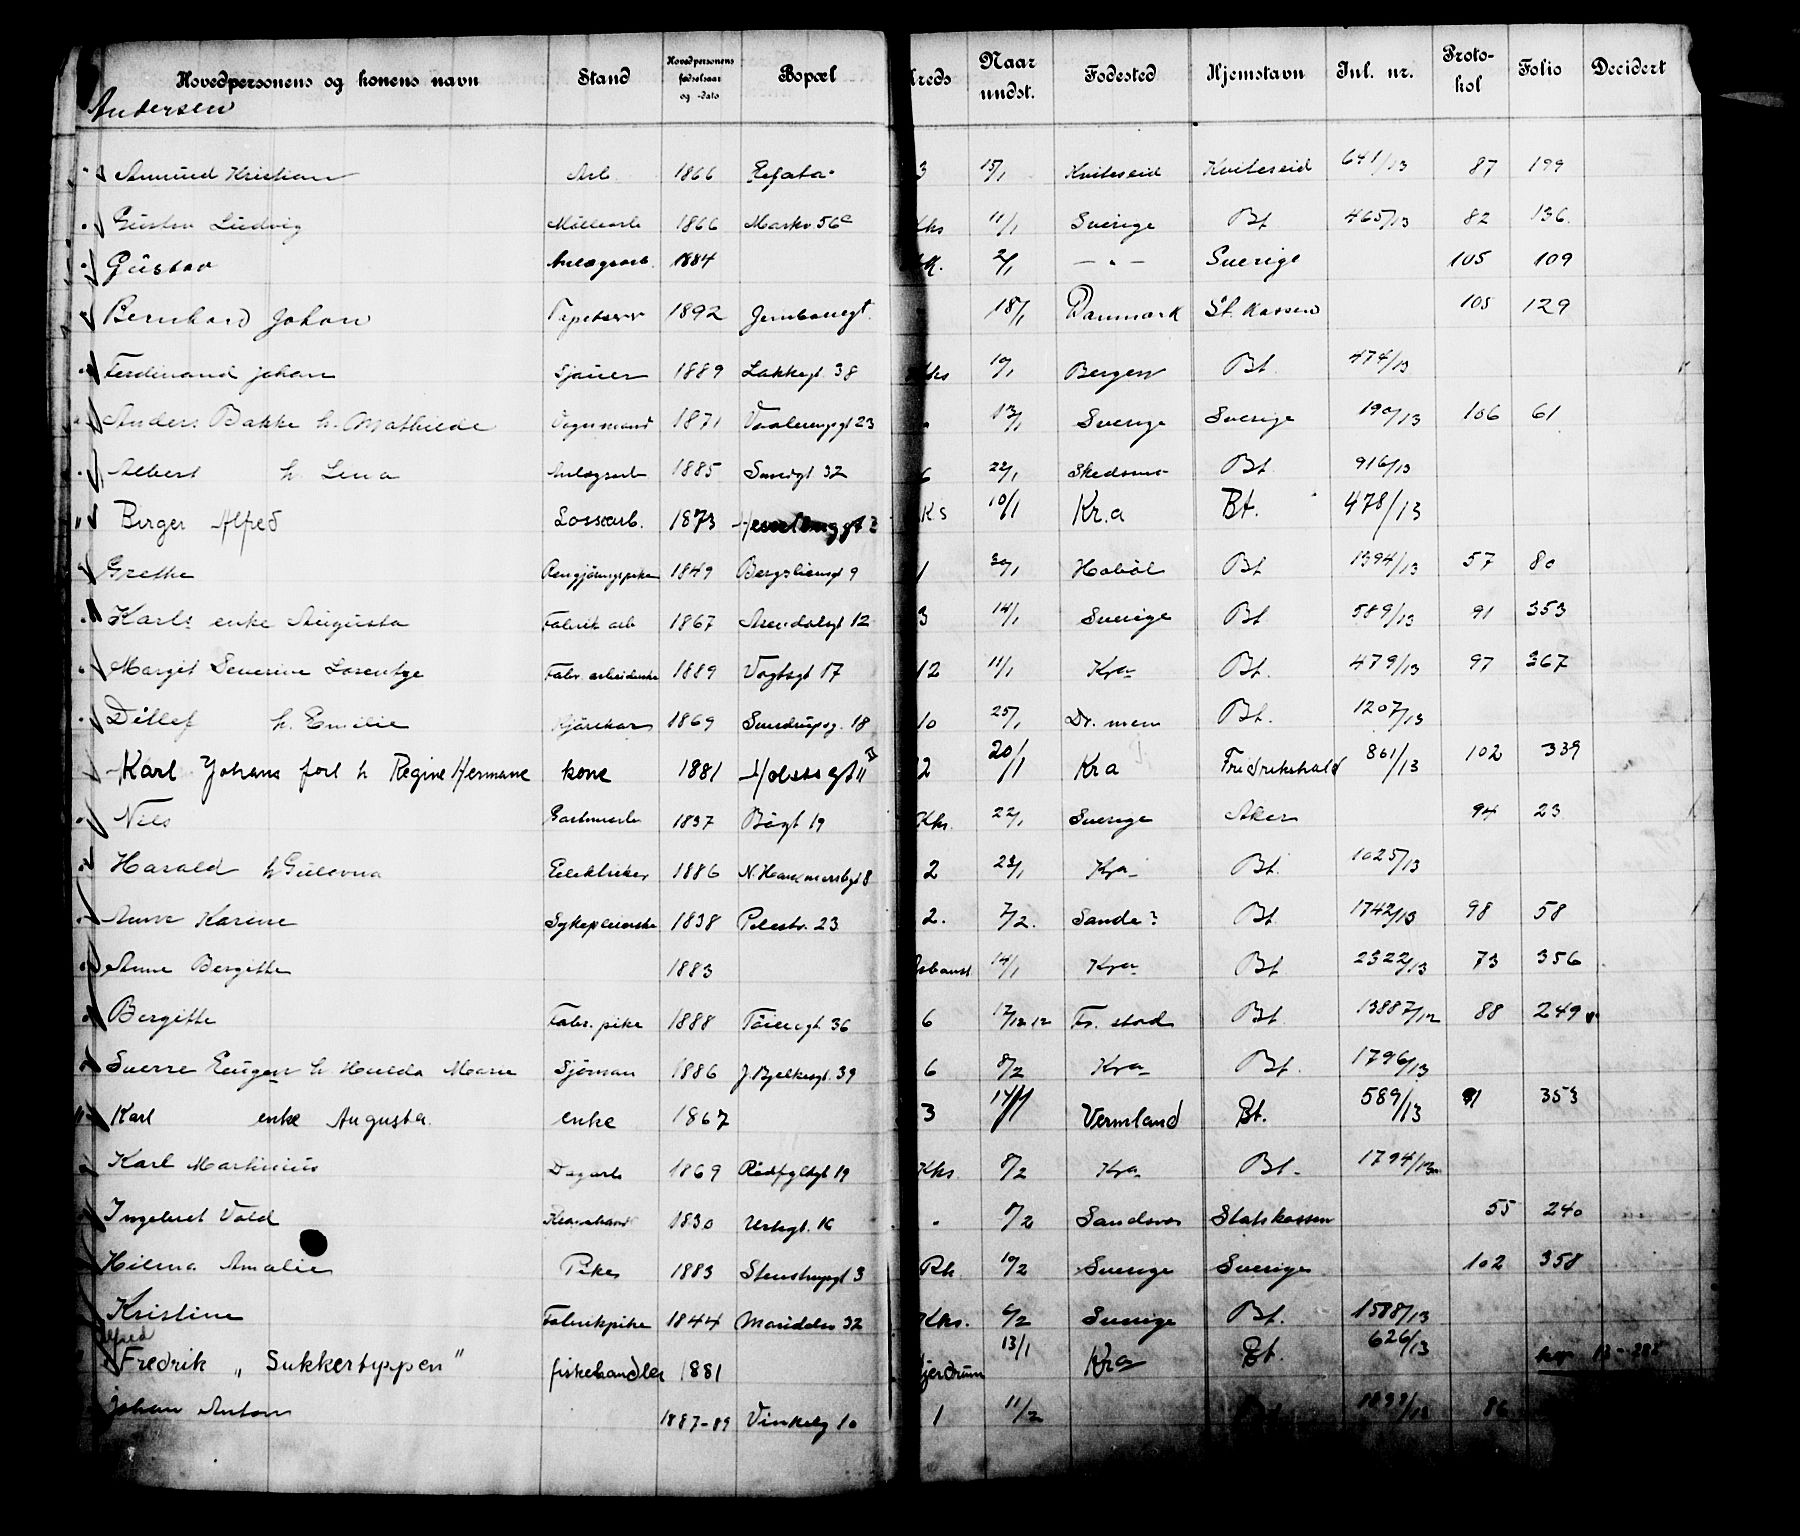 Hovedpersonens og konens navn Stand Hovedpersonens fødselsaar og -dato Bopæl Kreds Naar undst. Fødested Hjemstavn Inl. nr. Protokol Folio Decidert
Andersen
Amund Kristian Arb. 1866 3 15/1 Kviteseid Kviteseid 641/13 87 199
Gustav Ludvig Møllearb 1866 Markv 56c Kks 11/1 Sverige Bt 465/13 82 136
Gustav Anlægsarb. 1884 2/1 — " — Sverige 105 109
Bernhard Johan Tapetserer 1892 Jernbanegt. 18/1 Danmark St. kassen 105 129
Ferdinand Johan Sjauer 1889 Lakkegt. 38 Kks 10/1 Bergen Bt. 474/13
Anders Bakke h. Mathilde Vognmand 1871 Vaalerengt 23 13/1 Sverige Sverige 190/13 106 61
Albert h. Lena Anlægsarb 1885 32 6 22/1 Skedsmo Bt 916/13
Birger Alfred Lossearb. 1873 Ks 10/1 Kr.a Bt. 478/13
Grethe Rengjøringspike 1849 Bergsliensgt 9 1 30/1 Hobøl Bt 1394/13 57 80
Karls enke Augusta Fabrik arb 1867 Arendalsgt 12 3 14/1 Sverige Bt 589/13 91 353
Margit Severine Lorentze Fabr. arbeiderske 1889 Vogtsgt 17 12 11/1 Kra Bt. 479/13 97 367
Ditlef h. Emilie Kjørekar 1869 Sverdrupsg. 18 10 25/1 Dr. men Bt. 1207/13
Karl Johans forl h Regine Hermane kone 1881 Holstsgt 11 II 2 20/1 Kra Fredrikshald 861/13 102 339
Nils Gartnerarb 1837 Bøgt 19 Kks. 22/1 Sverige Aker 94 23
Harald h Gulovna Elektriker 1886 8 2 23/1 Kra Bt. 1025/13
Anne Karine Sykepleierske 1838 Pilestr. 23 2. 7/2. Sande? Bt 1742/13 98 58
Anne Bergitte 1883 14/1 Kra Bt 2322/13 73 356
Bergitte Fabr. pike 1888 Tøiengt 36 6 17/12 12 Fr. stad Bt 13887/12 88 249
Sverre Eugen h Hulda Marie Sjøman 1886 J. Bjelkesgt. 39 6 8/2 Kra Bt. 1796/13
Karl enke Augusta enke 1867 3 14/1 Vermland Bt. 589/13 91 353
Karl Martinius Dagarb 1869 Rødfyldgt 19 Kks. 8/2 Kra Bt. 1794/13
Ingebret Vold 1830 Urtegt. 16 8/2 Statskassen 55 240
Hilma Amalie Pike 1883 Stenstrupgt 3 Rk 10/2 Sverige Sverige 102 358
Kristine Fabrikpike 1844 Maridalsv 32 Kks. 6/2 Sverige Bt. 1588/13
Alfred
Fredrik „Sukkertyppen" fiskehandler 1881 Gjerdrum 13/1 Kra Bt. 626/13
Johan Anton 1887-89 Vinkelg 10 1 11/2 Bt 86